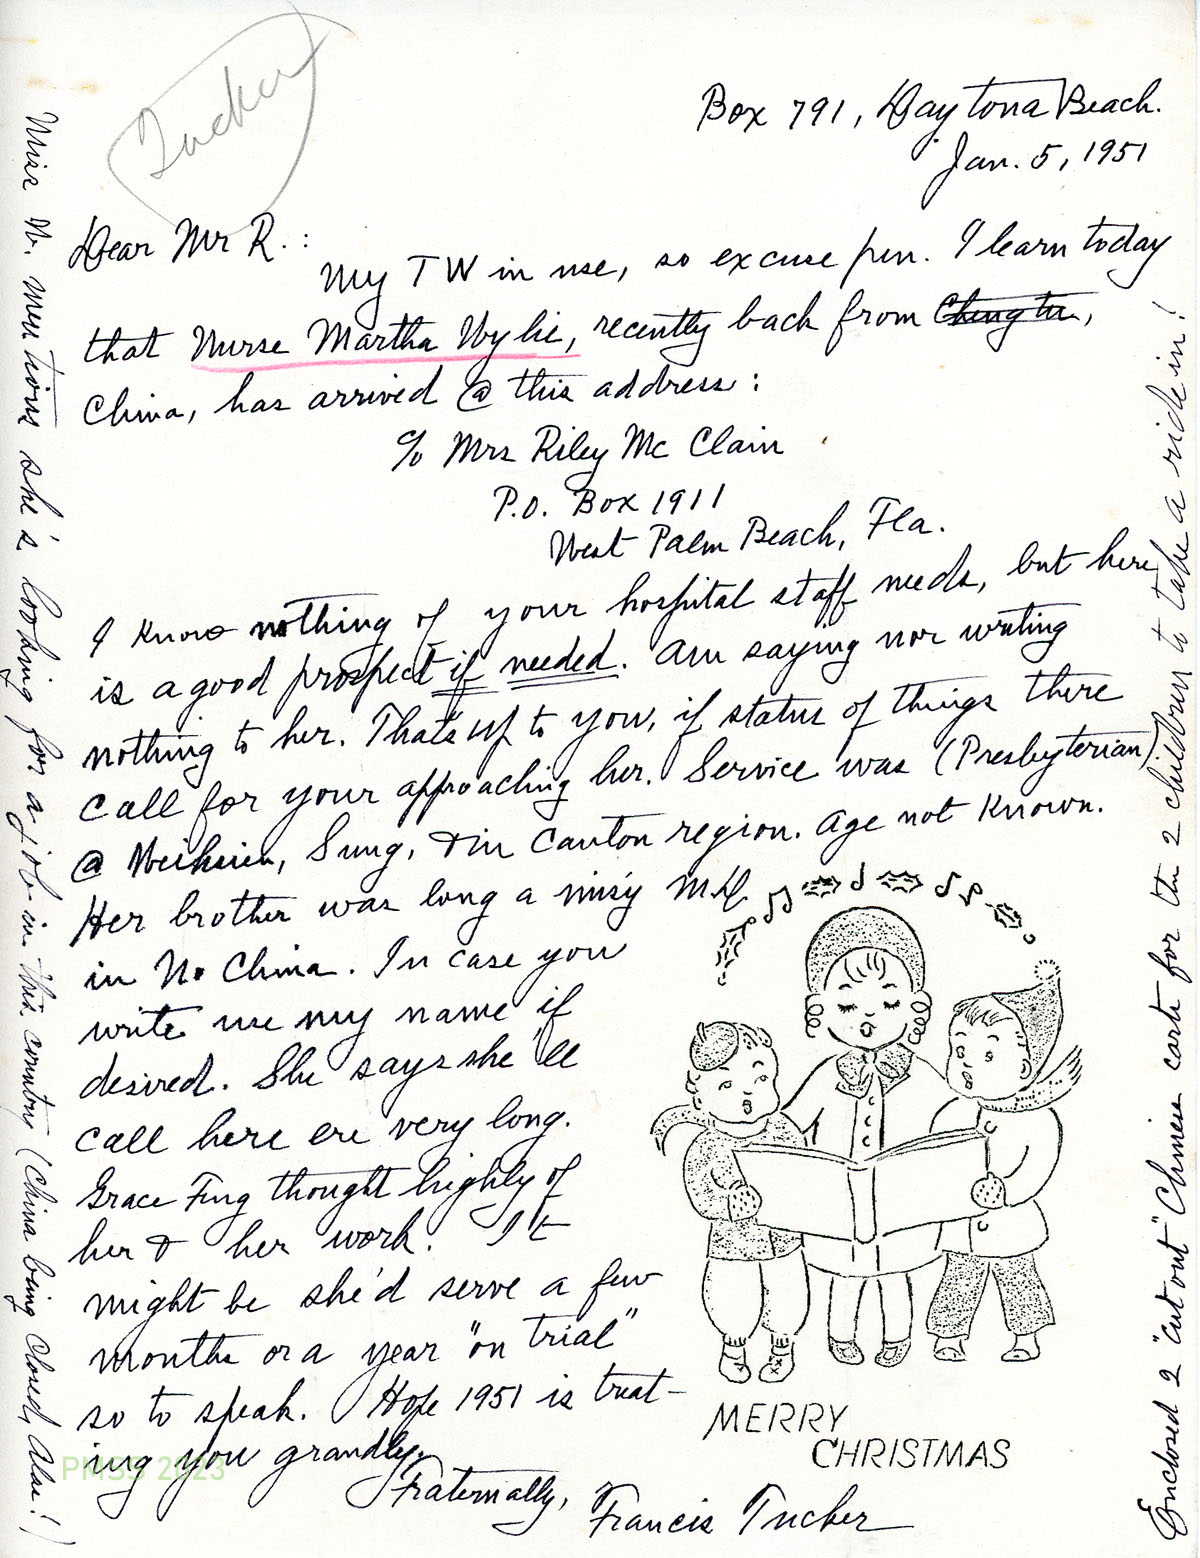 Tucker
Box 791, Daytona Beach.
Jan. 5, 1951
Dear Mr R.:
My TW in use, so excuse pen. I learn today
that Nurse Martha Wylie, recently back from
China, has arrived @ this address:
c/o Mrs Riley McClain
P.O. Box 1911
West Palm Beach, Fla.
I know nothing of your hospital staff needs, but here
is a good prospect if needed. Am saying nor writing
nothing to her. That's up to you, if status of things there
call for your approaching her. Service was (Presbyterian)
@ Weihsien, Sung, & in Canton region. Age not known.
Her brother was long a missy MD
in No China. In case you
write use my name if
desired. She says she'll
call here ere very long.
Grace Fung thought highly of
her & her work. It
might be she'd serve a few
months or a year "on trial"
so to speak. Hope 1951 is treat-
ing you grandly.
Fraternally,
Francis Tucker
MERRY
CHRISTMAS
Miss W. mentions she's looking for a job in this country (China being closed, alas!)
Enclosed 2 "cut out" Chinese carts for the 2 children to take a ride in!
PMSS 2023